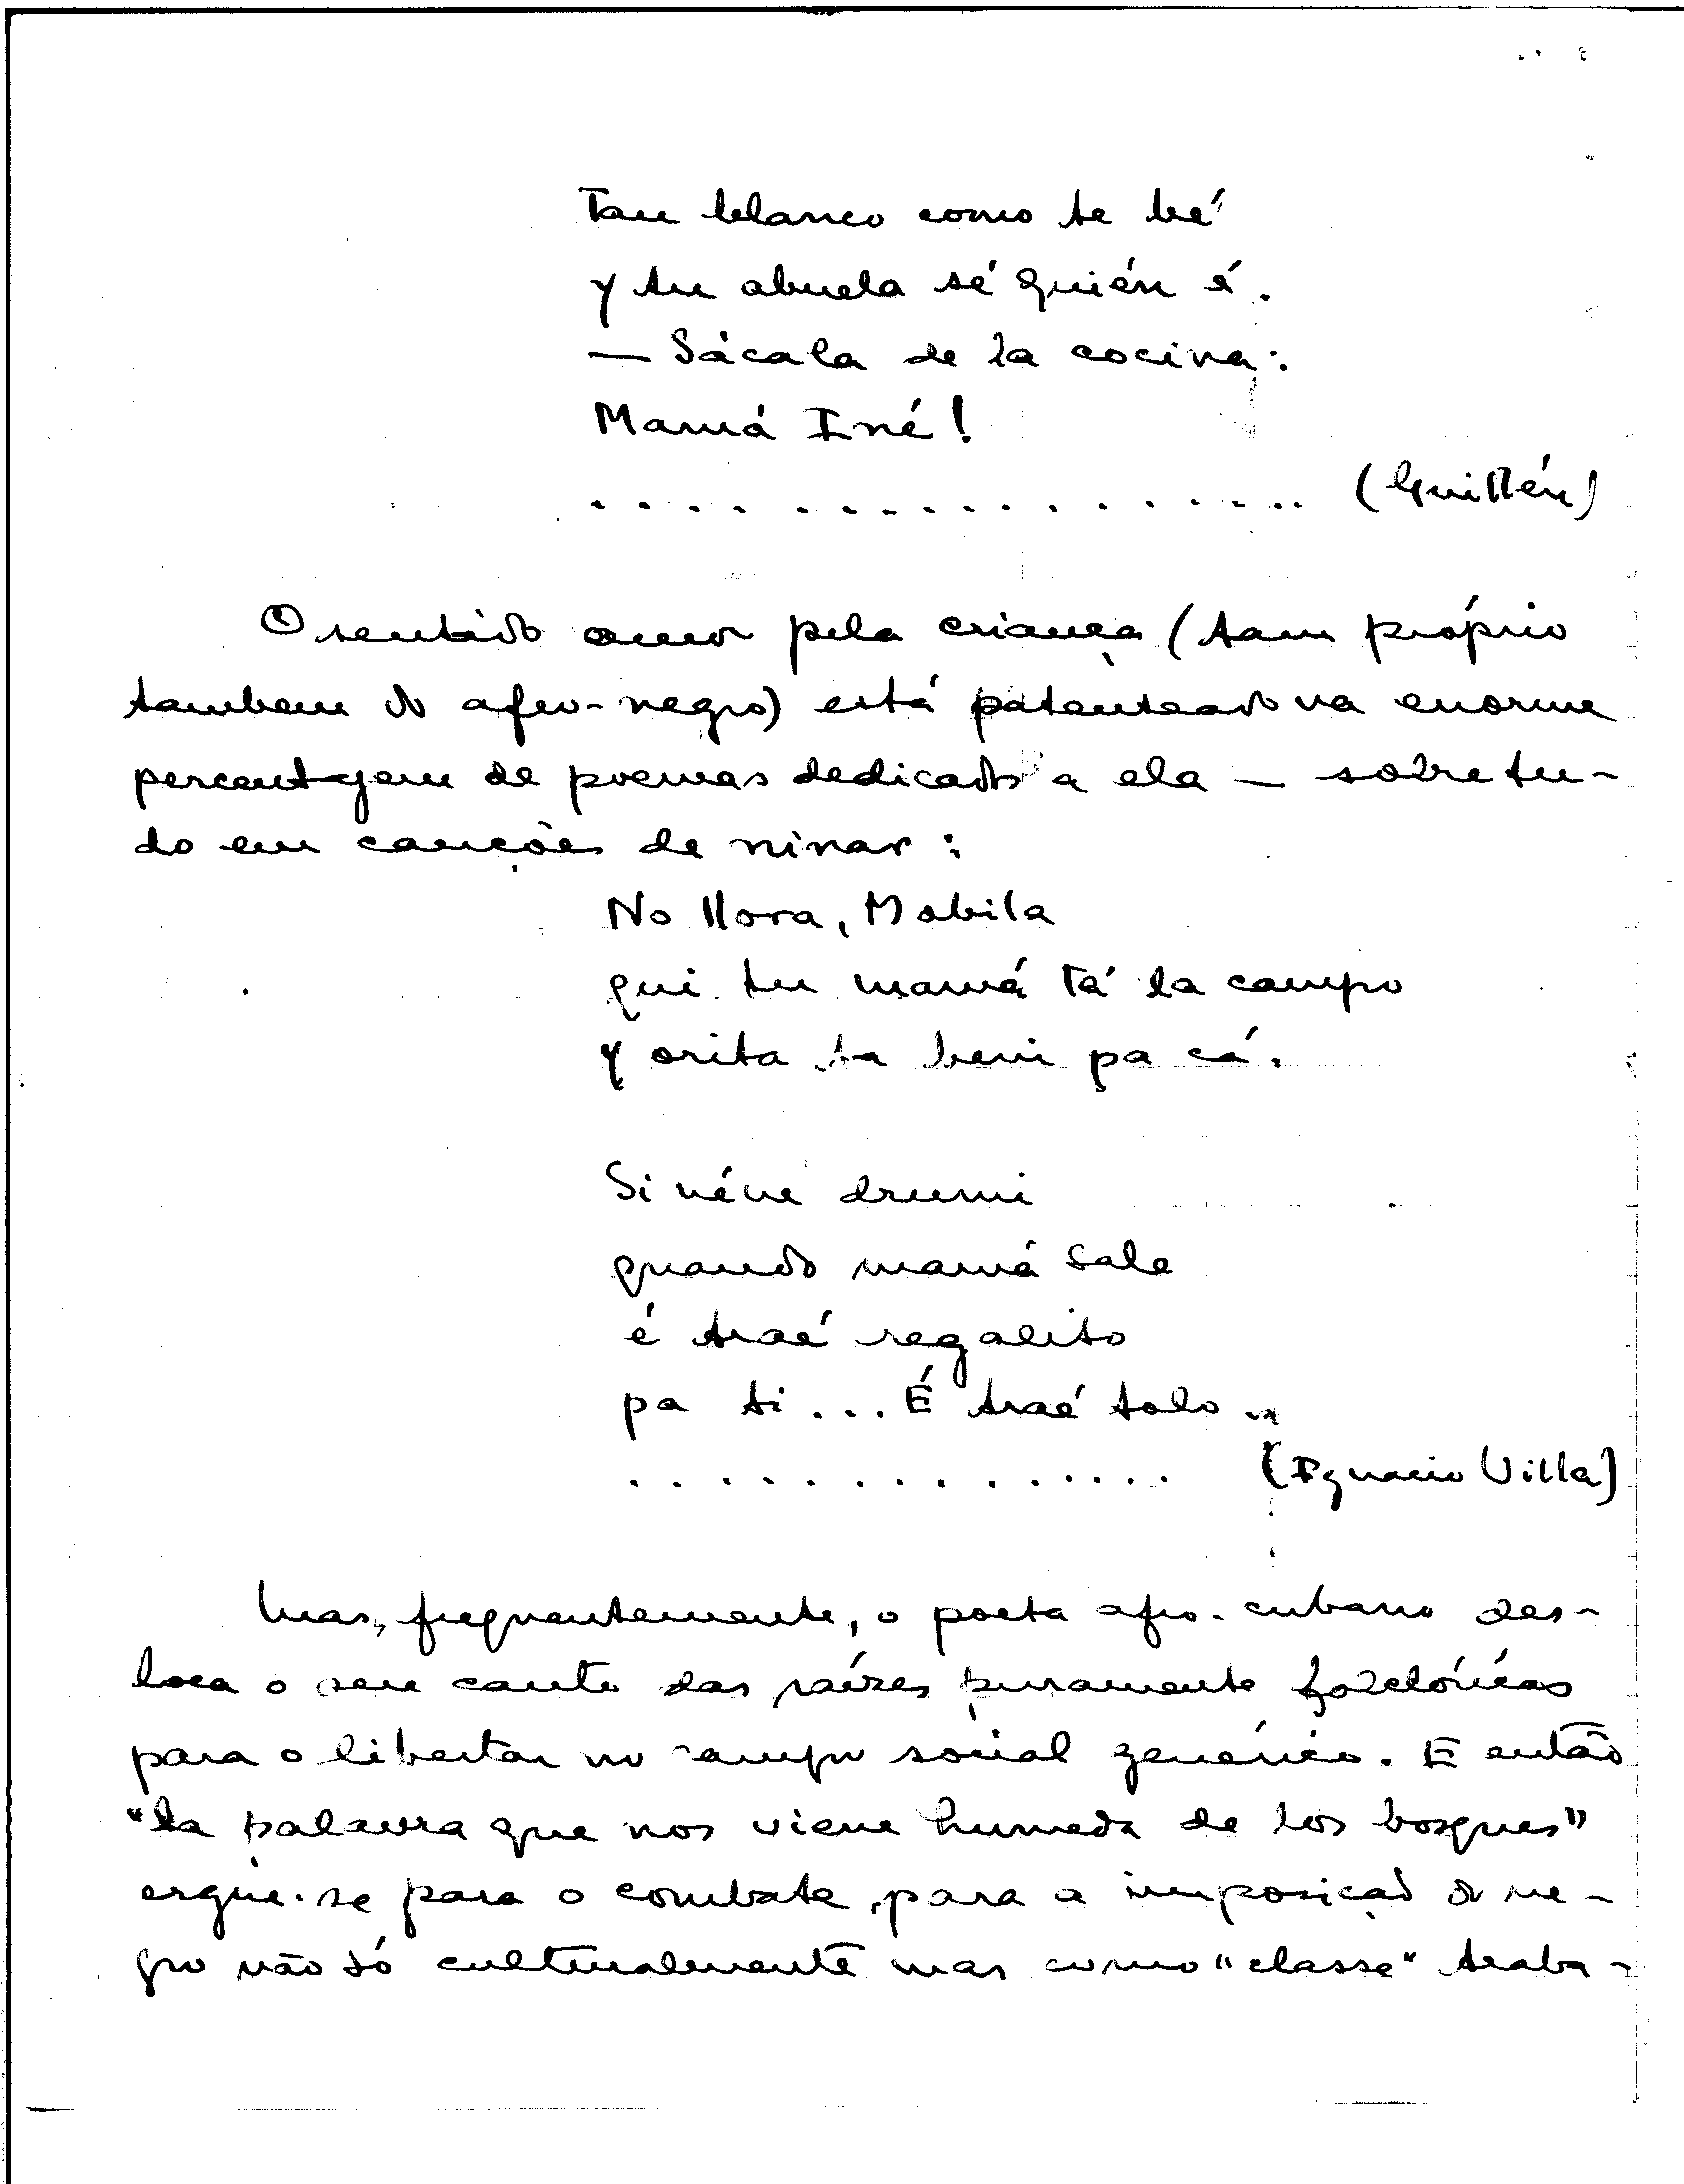 Tan blanco como te bé
y tu abuela sé quién é.
— Sácala de la cocina:
Mamá Iné!
. . . . . . . . . . . . . . . . . . (Guillén)
O sentido amor pela criança (tam próprio
tambem do afro-negro) está patenteado na enorme
percentagem de poemas dedicados a ela — sobretu-
do em canções de ninar:
No llora, Mobila
qui tu mamá tá la campo
y orita ta beni pa cá.
Si néne drumi
quando mamá sale
é traé regalito
pa ti... É traé tolo..
. . . . . . . . . . . . . . . . (Ignacio Villa)
Mas, frequentemente, o poeta afro-cubano des-
loca o seu canto das raízes puramente folclóricas
para o libertar no campo social genérico. E então
"la palavra que nos viene humeda de los bosques"
ergue-se para o combate, para a imposição do ne-
gro não só culturalmente mas como "classe" traba-